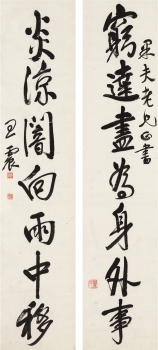 窮達盡為身外事
果夫老兄正書
炎涼闇向雨中移
王震